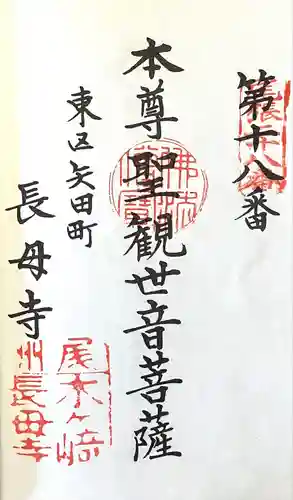 第十八番
本尊聖観世音菩薩
東区矢田町
長母寺
尾木ヶ崎
州長母寺